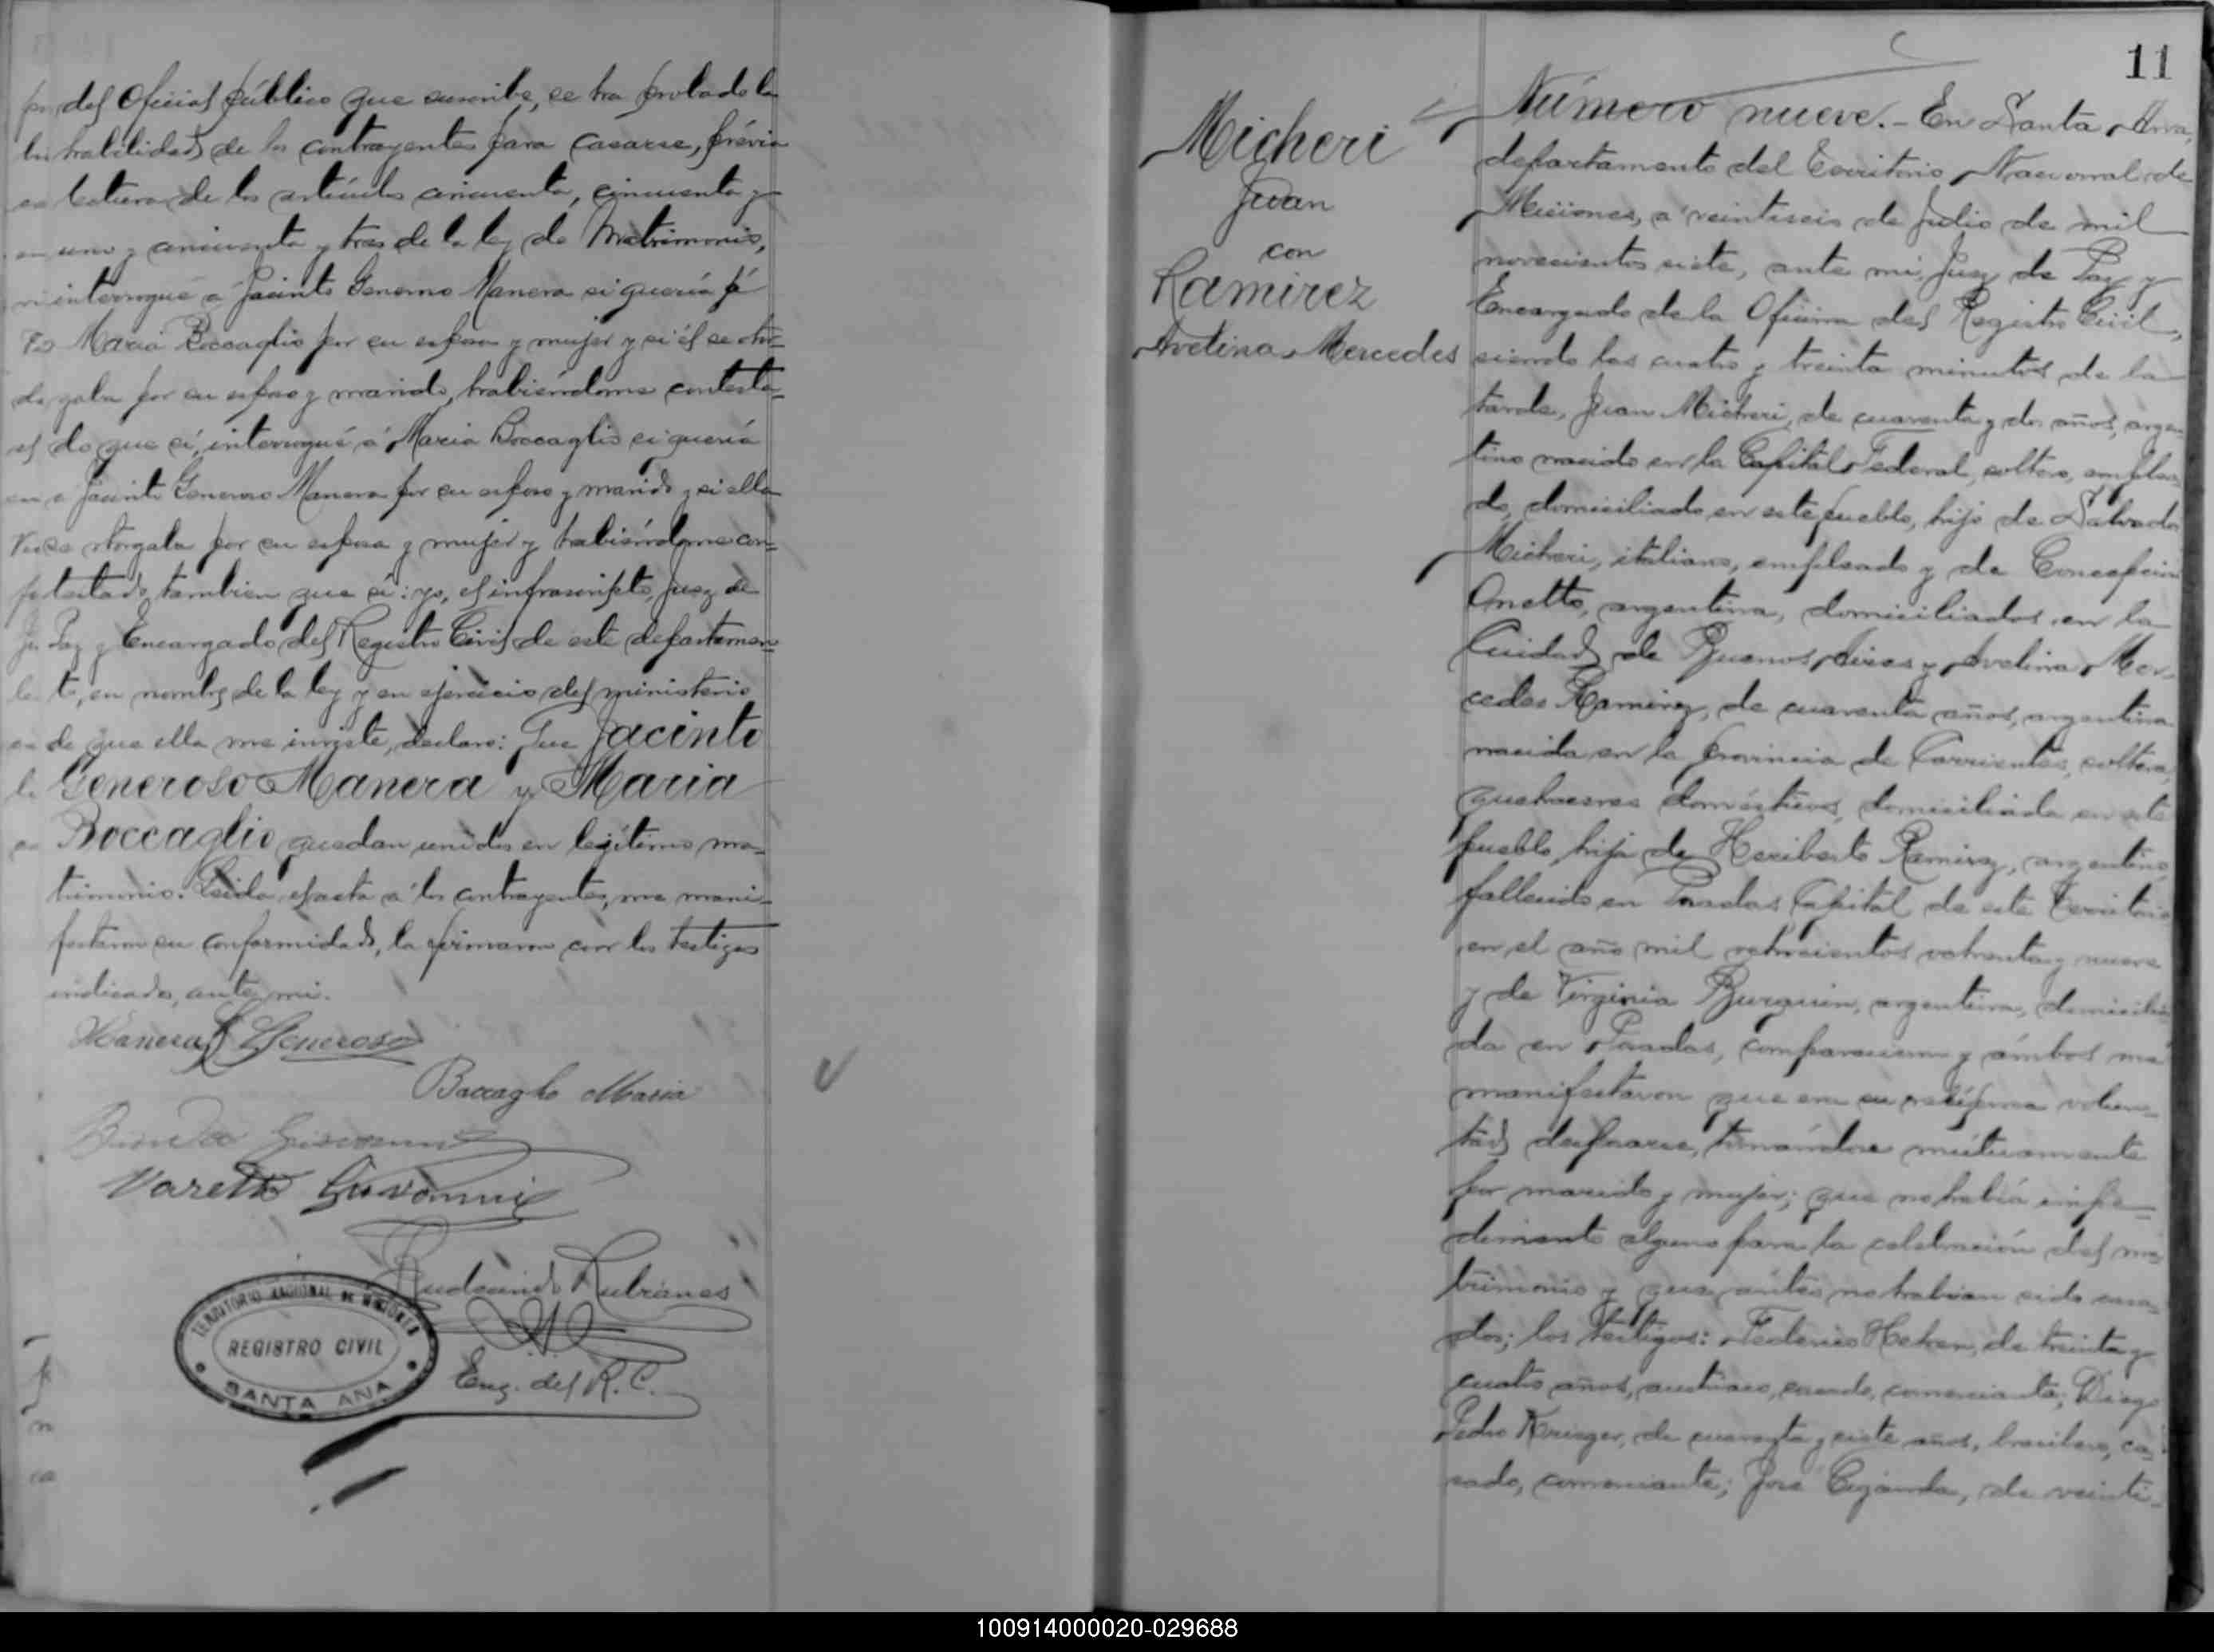 del Oficial público que suscribe, se ha probado la
habilidad de los contrayentes para casarse, prévia
lectura de los artículos cincuenta, cincuenta y
uno y cincuenta y tres de la ley de Matrimonio,
interrogué a Jacinto Generoso Manera si quería á
Maria Boccaglio por su esposa y mujer y si él se otor-
gaba por su esposo y marido, habiéndome contesta-
do que sí, interrogué á Maria Boccaglio si quería
a Jacinto Generoso Manera por su esposo y marido y si ella
se otorgaba por su esposa y mujer y habiéndome con-
testado tambien que sí: yo, el infrascripto, Juez de
Paz y Encargado del Registro Civil de este departamen-
to, en nombre de la ley y en ejercicio del ministerio
de que ella me inviste, declaro: Que Jacinto
Generoso Manera y Maria
Boccaglio quedan unidos en legítimo ma-
trimonio. Leida el acta á los contrayentes, me mani-
festaron su conformidad, la firmaron con los testigos
indicados, ante mi.
Manera J Generoso
Boccaglio Maria
Giovanni
Varetto Giovanni
Rudecindo Lubianes
TERRITORIO NACIONAL DE MISIONES
REGISTRO CIVIL
SANTA ANA
Eng. del R. C.
11
Micheri
Juan
con
Ramirez
Avelina Mercedes
Número nueve.- En Santa Ana,
departamento del Territorio Nacional de
Misiones, a veintiseis de Julio de mil
novecientos siete, ante mi, Juez de Paz y
Encargado de la Oficina del Registro Civil,
siendo las cuatro y treinta minutos de la
tarde, Juan Micheri, de cuarenta y dos años, argen-
tino nacido en la Capital Federal, soltero, emplea-
do, domiciliado en este pueblo, hijo de Salvador
Micheri, italiano, empleado y de Concepcion
Onetto, argentina, domiciliados en la
Ciudad de Buenos Aires y Avelina Mer-
cedes Ramirez, de cuarenta años, argentina
nacida en la Provincia de Corrientes, soltera,
quehaceres domésticos, domiciliada en este
pueblo, hija de Heriberto Ramirez, argentino,
fallecido en Posadas Capital de este Territorio
en el año mil ochocientos ochenta y nueve
y de Virginia argentina, domicilia-
da en Posadas, comparecieron y ámbos me
manifestaron que era su volun-
tad desposarse, tomándose mútuamente
por marido y mujer; que no habia impe-
dimento alguno para la celebración del ma-
trimonio y que ántes no habian sido casa-
dos; los testigos: Federico de treinta y
cuatro años, austriaco, casado, comerciante; Diego
Pedro Krieger, de cuarenta y siete años, brasilero, ca-
sado, comerciante; José Cigánda, de veinti-
100914000020-029688